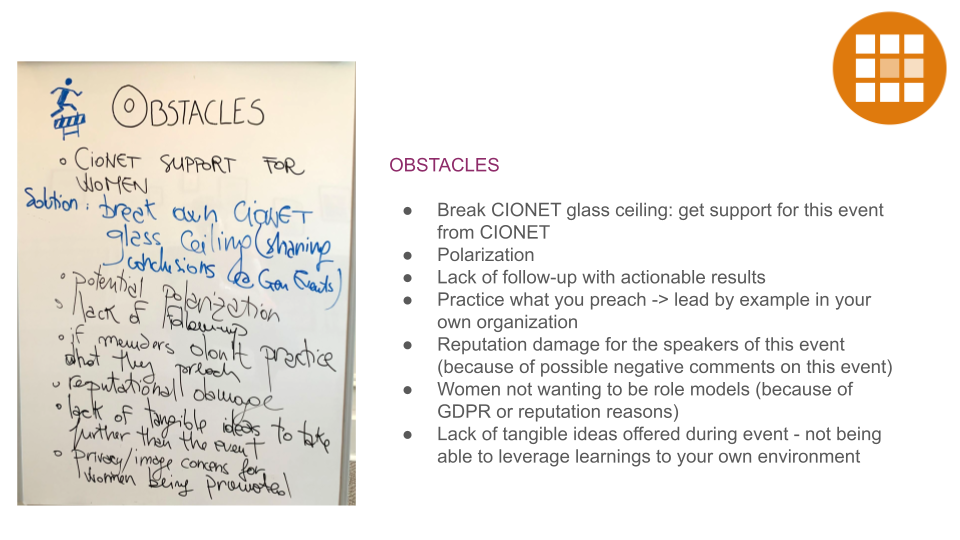 OBSTACLES
CIONET SUPPORT FOR
WOMEN
Solution: break own CIONET
glass ceiling (sharing
conclusions @ Gen Events)
potential polarization
lack of followup
if members don't practice
what they preach
reputational damage
lack of tangible ideas to take
further than the event
privacy/image concens for
women being promoted
OBSTACLES
● Break CIONET glass ceiling: get support for this event
from CIONET
● Polarization
● Lack of follow-up with actionable results
● Practice what you preach -> lead by example in your
own organization
● Reputation damage for the speakers of this event
(because of possible negative comments on this event)
● Women not wanting to be role models (because of
GDPR or reputation reasons)
● Lack of tangible ideas offered during event - not being
able to leverage learnings to your own environment